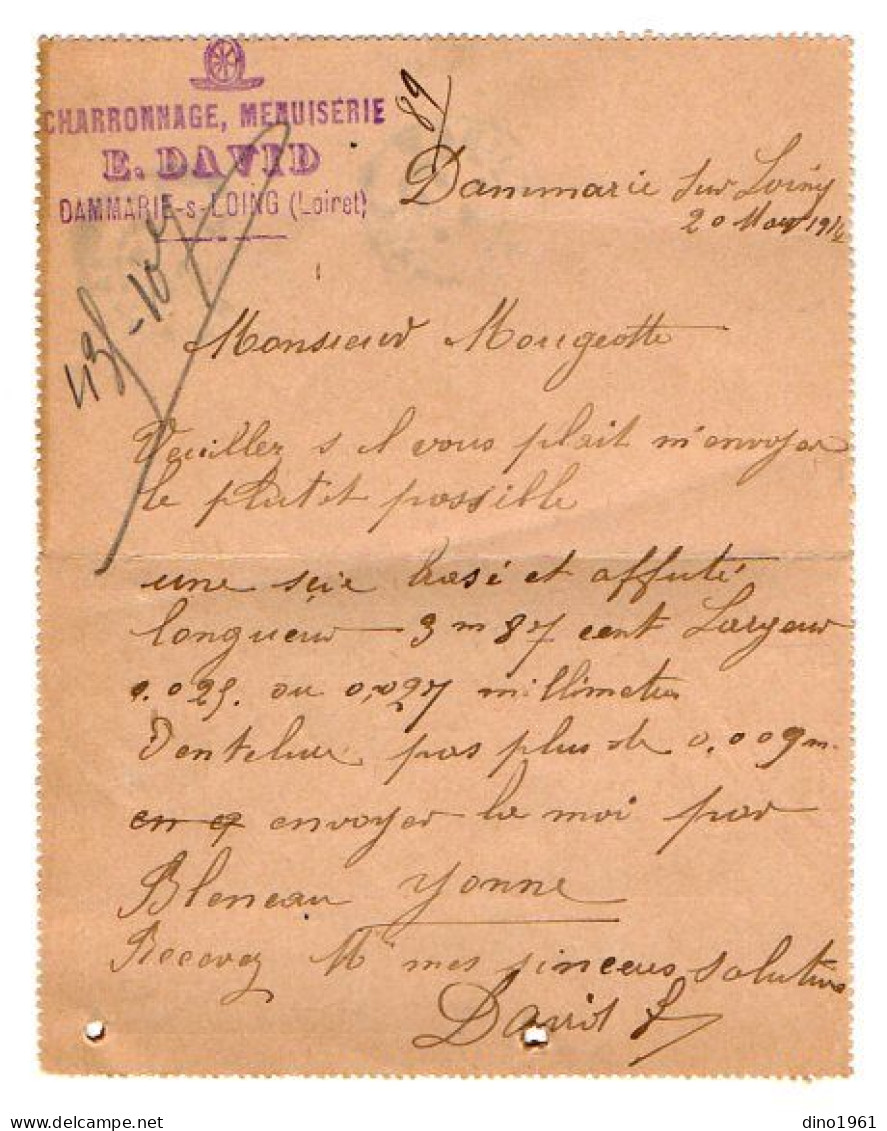 CHARRONNAGE, MENUISERIE
E. DAVID
DAMMARIE-s-LOING (Loiret)
89
Dammarie sur Loing
20 Mars 1914
Monsieur Mougeotte
Veuillez s il vous plait m'envoyer
le plutot possible
une scie brasé et affuté
longueur 3m 87 cent Largeur
0.025. ou 0,027 millimetres
Dentelure pas plus de 0.009m
envoyer la moi par
Bleneau Yonne
Recevez Mr mes sinceres salutations
David
dino1961